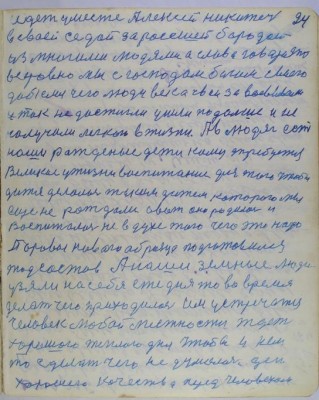 24
едет уместе Алексей никитеч
всваей седой заросшей бородой
из многими людями а слава говорят
веровно мы с Господом Богом своего
добъеми чего люди веса
и так не достигли ушли подальше и не
получили легкого в жизни. А в людях есть
наши рожденые дети кому требуется
Великое у жизни воспитание для того чтобы
дитё делалося таким дитем которого мы
еще не рождали а вот оно родилося и
воспиталося не в духе того чего это надо
Паровоз нового образца подготовился
под состав А наши земные люди
узяли на себя сегодня то во время
делат чего приходился им устречать
человек любой местности ждет
хорошего теплого дня чтобы у нем
то сделат чего не думалося ден
хорошего качества перед человеком